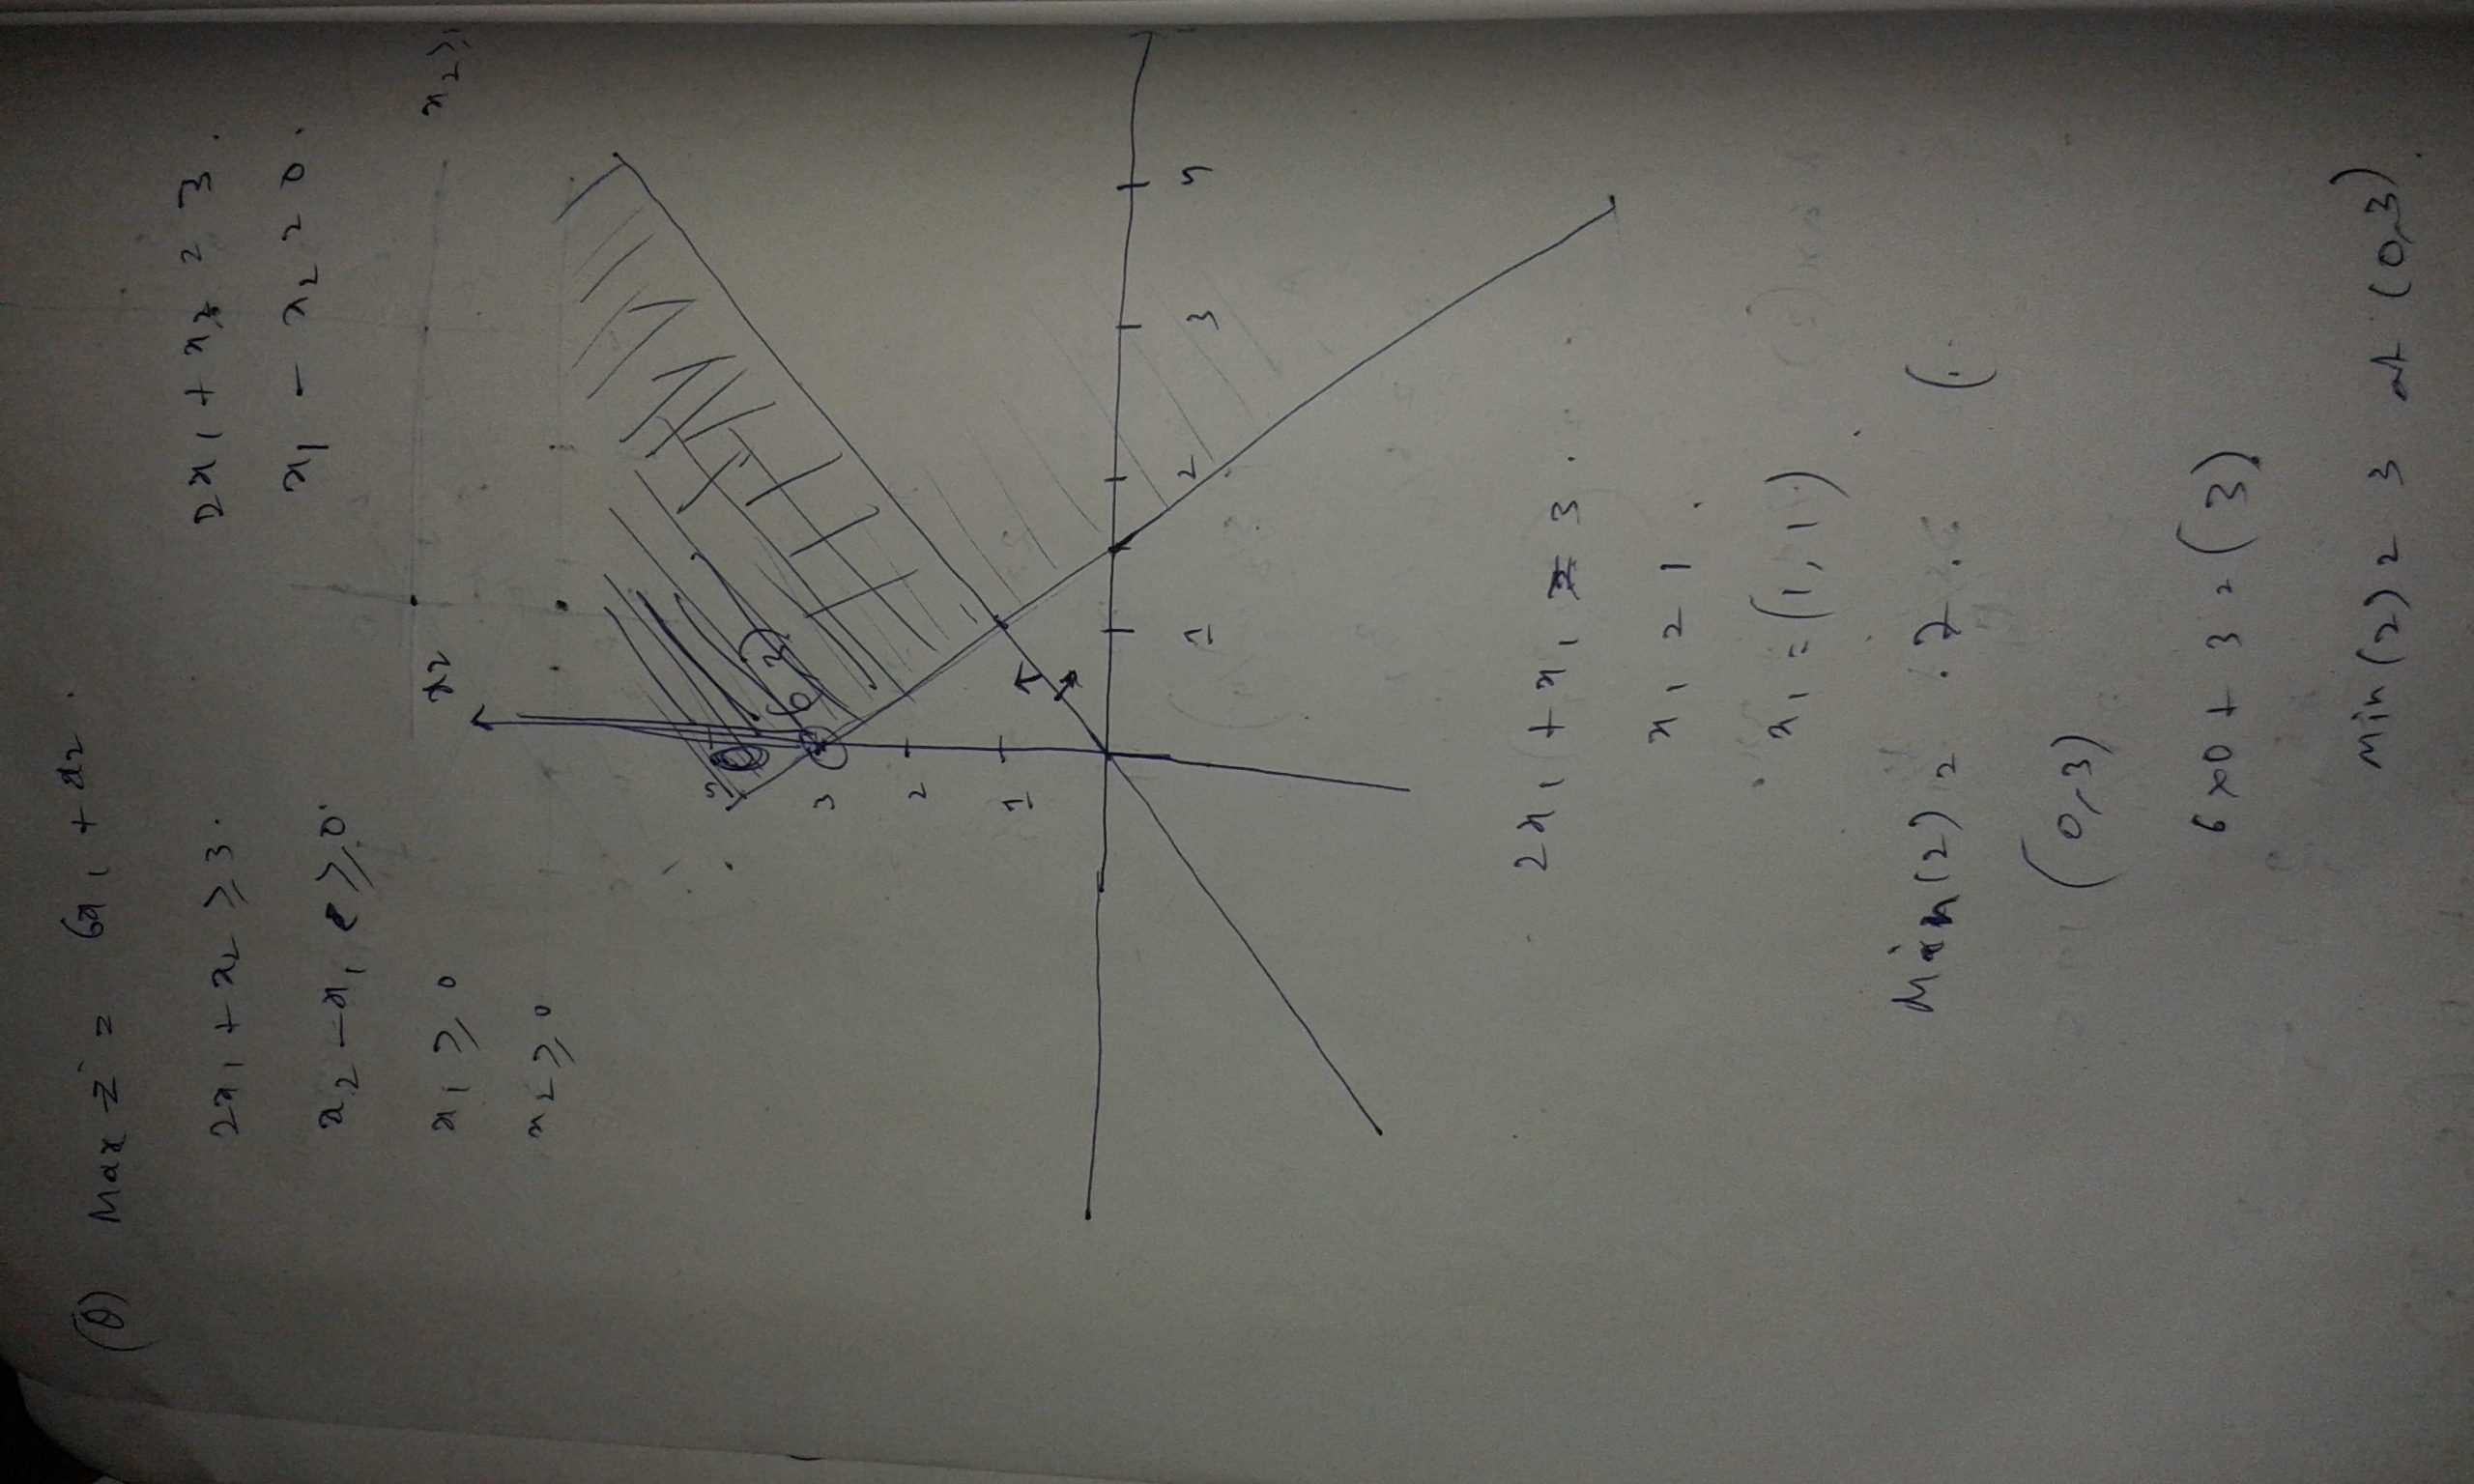 (Q) Max Z = 6x1 + x2.
2x1 + x2 ≥ 3.
2x1 + x2 = 3.
x1 - x2 = 0.
x2 - x1 ≥ 0.
x1 ≥ 0
x2 ≥
x2 ≥ 0
x2
4
(0, 3)
3
2
1
1 2 3 4
2x1 + x1 = 3.
x1 = 1.
x1 = (1, 1)
Min(Z) = 7.
(
(0, 3)
6x0 + 3 = (3)
Min(Z) = 3 at (0,3)